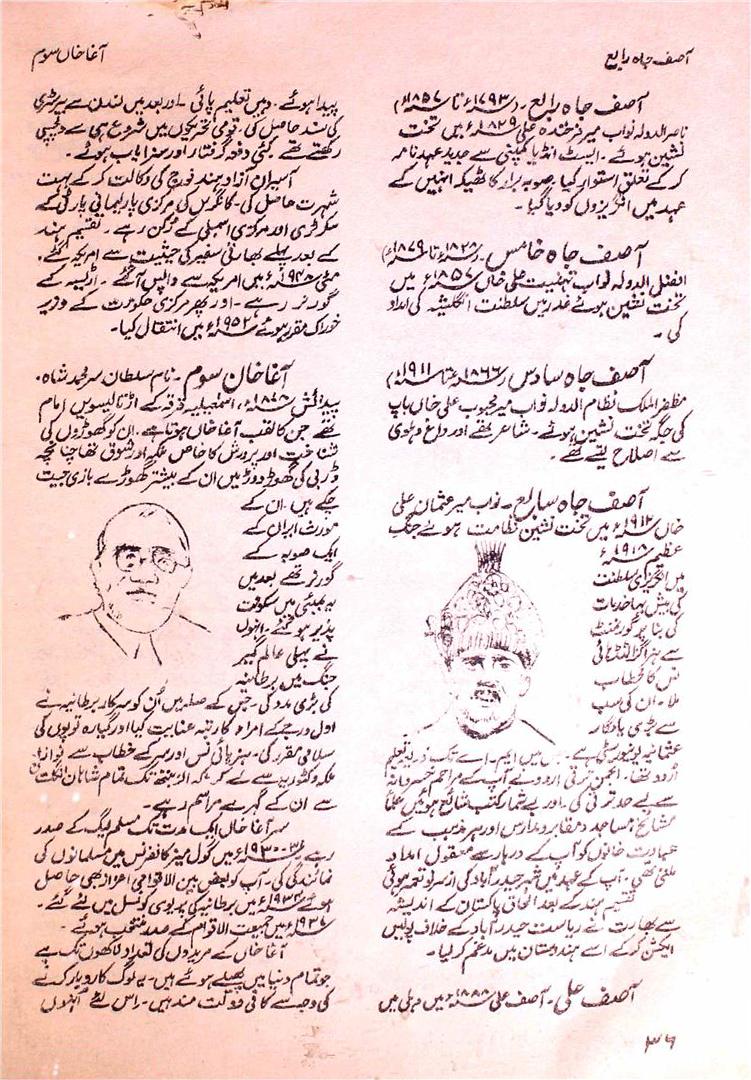 آصف جاہ رابع
آغا خاں سوم
آصف جاہ رابع ۔ (۱۷۹۳ء تا ۱۸۵۷ء)
ناصر الدولہ نواب میر فرخندہ علی ۱۸۲۹ء میں تخت
نشین ہوئے ۔ ایسٹ انڈیا کمپنی سے جدید عہد نامہ
کر کے تعلق استوار کیا ۔ صوبہ برار کا ٹھیکہ انہیں کے
عہد میں انگریزوں کو دیا گیا ۔
آصف جاہ خامس ۔ (۱۸۲۸ء تا ۱۸۷۹ء)
افضل الدولہ نواب تہنیت علی خاں ۱۸۵۷ء میں
تخت نشین ہوئے غدر میں سلطنت انگلیشہ کی امداد
کی ۔
آصف جاہ سادس (۱۸۶۶ء تا ۱۹۱۱ء)
مظفر الملک نظام الدولہ نواب میر محبوب علی خاں باپ
کی جگہ تخت نشین ہوئے ۔ شاعر تھے اور داغ دہلوی
سے اصلاح لیتے تھے ۔
آصف جاہ سابع ۔ نواب میر عثمان علی
خاں ۱۹۱۲ء میں تخت نشین نظامت ہوئے جنگ
عظیم ۱۹۱۸ء
میں انگریزی سلطنت
کی بیش بہا خدمات
کی بنا پر گورنمنٹ
سے ہز اگزالٹڈ ہائی
نس کا خطاب
ملا ۔ ان کی سب
سے بڑی یادگار
عثمانیہ یونیورسٹی ہے ۔ جس میں ایم ۔ اے تک ذریعہ تعلیم
اُردو تھا ۔ انجمن ترقی اردو نے آپ کے مراحم خسروانہ
سے بے حد ترقی کی ۔ اور بے شمار کتب شائع ہوئیں علماً
مشائخ مساجد و مقابر و مدارس اور ہر مذہب کے
عبادت خانوں کو آپ کے دربار سے معقول امداد
ملتی تھی ۔ آپ کے عہد میں شہر حیدر آباد کی از سر نو تعمیر ہوئی
تقسیم ہند کے بعد الحاق پاکستان کے اندیشہ
سے بھارت نے ریاست حیدر آباد کے خلاف پولیس
ایکشن کر کے اسے ہندوستان میں مدغم کر لیا ۔
آصف علی ۔ آصف علی ۱۸۸۸ء میں دہلی میں
پیدا ہوئے ۔ وہیں تعلیم پائی ۔ اور بعد میں لندن سے بیرسٹری
کی سند حاصل کی ۔ قومی تحریکوں میں شروع ہی سے دلچسپی
رکھتے تھے ۔ کئی دفعہ گرفتار اور سزا یاب ہوئے ۔
اسیران آزاد ہند فوج کی وکالت کر کے بہت
شہرت حاصل کی ۔ کانگرس کی مرکزی پارلیمانی پارٹی کے
سکرٹری اور مرکزی اسمبلی کے رُکن رہے ۔ تقسیم ہند
کے بعد پہلے بھارتی سفیر کی حیثیت سے امریکہ گئے ۔
مئی ۱۹۴۸ء میں امریکہ سے واپس آگئے ۔ اڑیسہ کے
گورنر رہے ۔ اور پھر مرکزی حکومت کے وزیر
خوراک مقرر ہوئے ۱۹۵۲ء میں انتقال کیا ۔
آغا خان سوم ۔ نام سلطان سر محمد شاہ ۔
پیدائش ۱۸۷۸ء، اسمٰعیلیہ فرقہ کے اڑتالیسویں امام
تھے جن کا لقب آغا خاں ہوتا ہے ۔ ان کو گھوڑوں کی
شناخت اور پرورش کا خاص ملکہ اور شوق تھا چنانچہ
ڈربی کی گھوڑ دوڑ میں ان کے بیشتر گھوڑے بازی جیت
چکے ہیں ۔ ان کے
مورث ایران کے
ایک صوبہ کے
گورنر تھے بعد میں
یہ بمبئی میں سکونت
پذیر ہو گئے ۔ انہوں
نے پہلی عالمگیر
جنگ میں برطانیہ
کی بڑی مدد کی ۔ جس کے صلہ میں اُن کو سرکار برطانیہ نے
اول درجے کے امراء کا رتبہ عنایت کیا اور گیارہ توپوں کی
سلامی مقرر کی ۔ ہز ہائی نس اور سر کے خطاب سے نوازا ۔
ملکہ وکٹوریہ سے لے کر ملکہ الزبتھ تک تمام شاہان انگلستان
سے ان کے گہرے مراسم رہے ۔
سر آغا خاں ایک مدت تک مسلم لیگ کے صدر
رہے ۳۱-۱۹۳۰ء میں گول میز کانفرنس میں مسلمانوں کی
نمائندگی کی ۔ آپ کو بعض بین الاقوامی اعزاز بھی حاصل
ہوئے ۱۹۳۴ء میں برطانیہ کی پریوی کونسل میں لئے گئے ۔
۱۹۳۷ء میں جمعیت الاقوام کے صدر منتخب ہوئے ۔
آغا خاں کے مریدوں کی تعداد لاکھوں تک ہے
جو تمام دنیا میں پھیلے ہوئے ہیں ۔ یہ لوگ کاروبار کرنے
کی وجہ سے کافی دولت مند ہیں ۔ اس لئے انہوں
۳۶